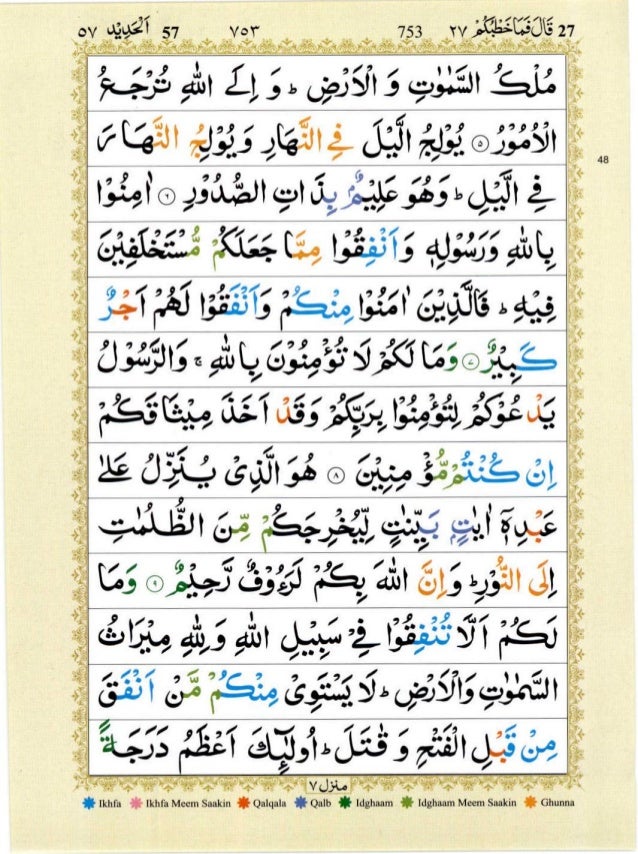 ٥٧ اَلْحَدِيْد 57 ٧٥٣ 753 ٢٧ قَالَ فَمَا خَطْبُكُمْ 27
مُلْكُ السَّمٰوٰتِ وَ الْاَرْضِ ؕ وَ اِلَى اللّٰهِ تُرْجَعُ
الْاُمُوْرُ ۝٥ يُوْلِجُ الَّيْلَ فِي النَّهَارِ وَ يُوْلِجُ النَّهَارَ
48
فِي الَّيْلِ ؕ وَهُوَ عَلِيْمٌۢ بِذَاتِ الصُّدُوْرِ ۝٦ اٰمِنُوْا
بِاللّٰهِ وَرَسُوْلِهٖ وَاَنْفِقُوْا مِمَّا جَعَلَكُمْ مُّسْتَخْلَفِيْنَ
فِيْهِ ؕ فَالَّذِيْنَ اٰمَنُوْا مِنْكُمْ وَاَنْفَقُوْا لَهُمْ اَجْرٌ
كَبِيْرٌ ۝٧ وَمَا لَكُمْ لَا تُؤْمِنُوْنَ بِاللّٰهِ ۚ وَالرَّسُوْلُ
يَدْعُوْكُمْ لِتُؤْمِنُوْا بِرَبِّكُمْ وَقَدْ اَخَذَ مِيْثَاقَكُمْ
اِنْ كُنْتُمْ مُّؤْمِنِيْنَ ۝٨ هُوَ الَّذِيْ يُنَزِّلُ عَلٰى
عَبْدِهٖۤ اٰيٰتٍۭ بَيِّنٰتٍ لِّيُخْرِجَكُمْ مِّنَ الظُّلُمٰتِ
اِلَى النُّوْرِ ؕ وَاِنَّ اللّٰهَ بِكُمْ لَرَءُوْفٌ رَّحِيْمٌ ۝٩ وَمَا
لَكُمْ اَلَّا تُنْفِقُوْا فِيْ سَبِيْلِ اللّٰهِ وَلِلّٰهِ مِيْرَاثُ
السَّمٰوٰتِ وَالْاَرْضِ ؕ لَا يَسْتَوِيْ مِنْكُمْ مَّنْ اَنْفَقَ
مِنْ قَبْلِ الْفَتْحِ وَ قٰتَلَ ؕ اُولٰٓئِكَ اَعْظَمُ دَرَجَةً
منزل ٧
Ikhfa Ikhfa Meem Saakin Qalqala Qalb Idghaam Idghaam Meem Saakin Ghunna